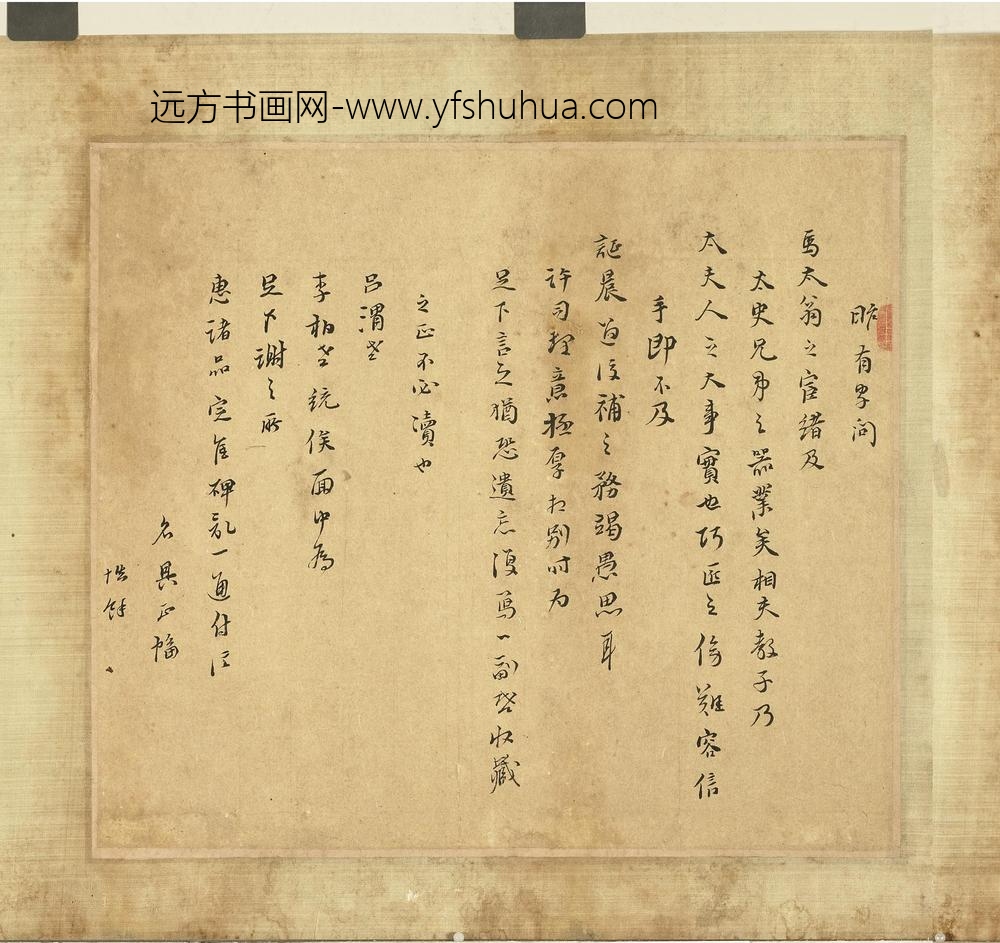 远方书画网-www.yfshuhua.com
有字问
馬太翁之宦緒及
太史兄弟之器業矣相夫教子乃
太夫人之大事實也巧匠之 難容信
手即不及
証晨 後補之務竭愚思耳
許司理意極厚相别时为
足下言之猶恐遺忘復寫一副 收藏
之正不必瀆也
吕渭老
李柏老統俟面申為
足下謝之所
惠諸品完隹碑 一通付
名具正幅
餘